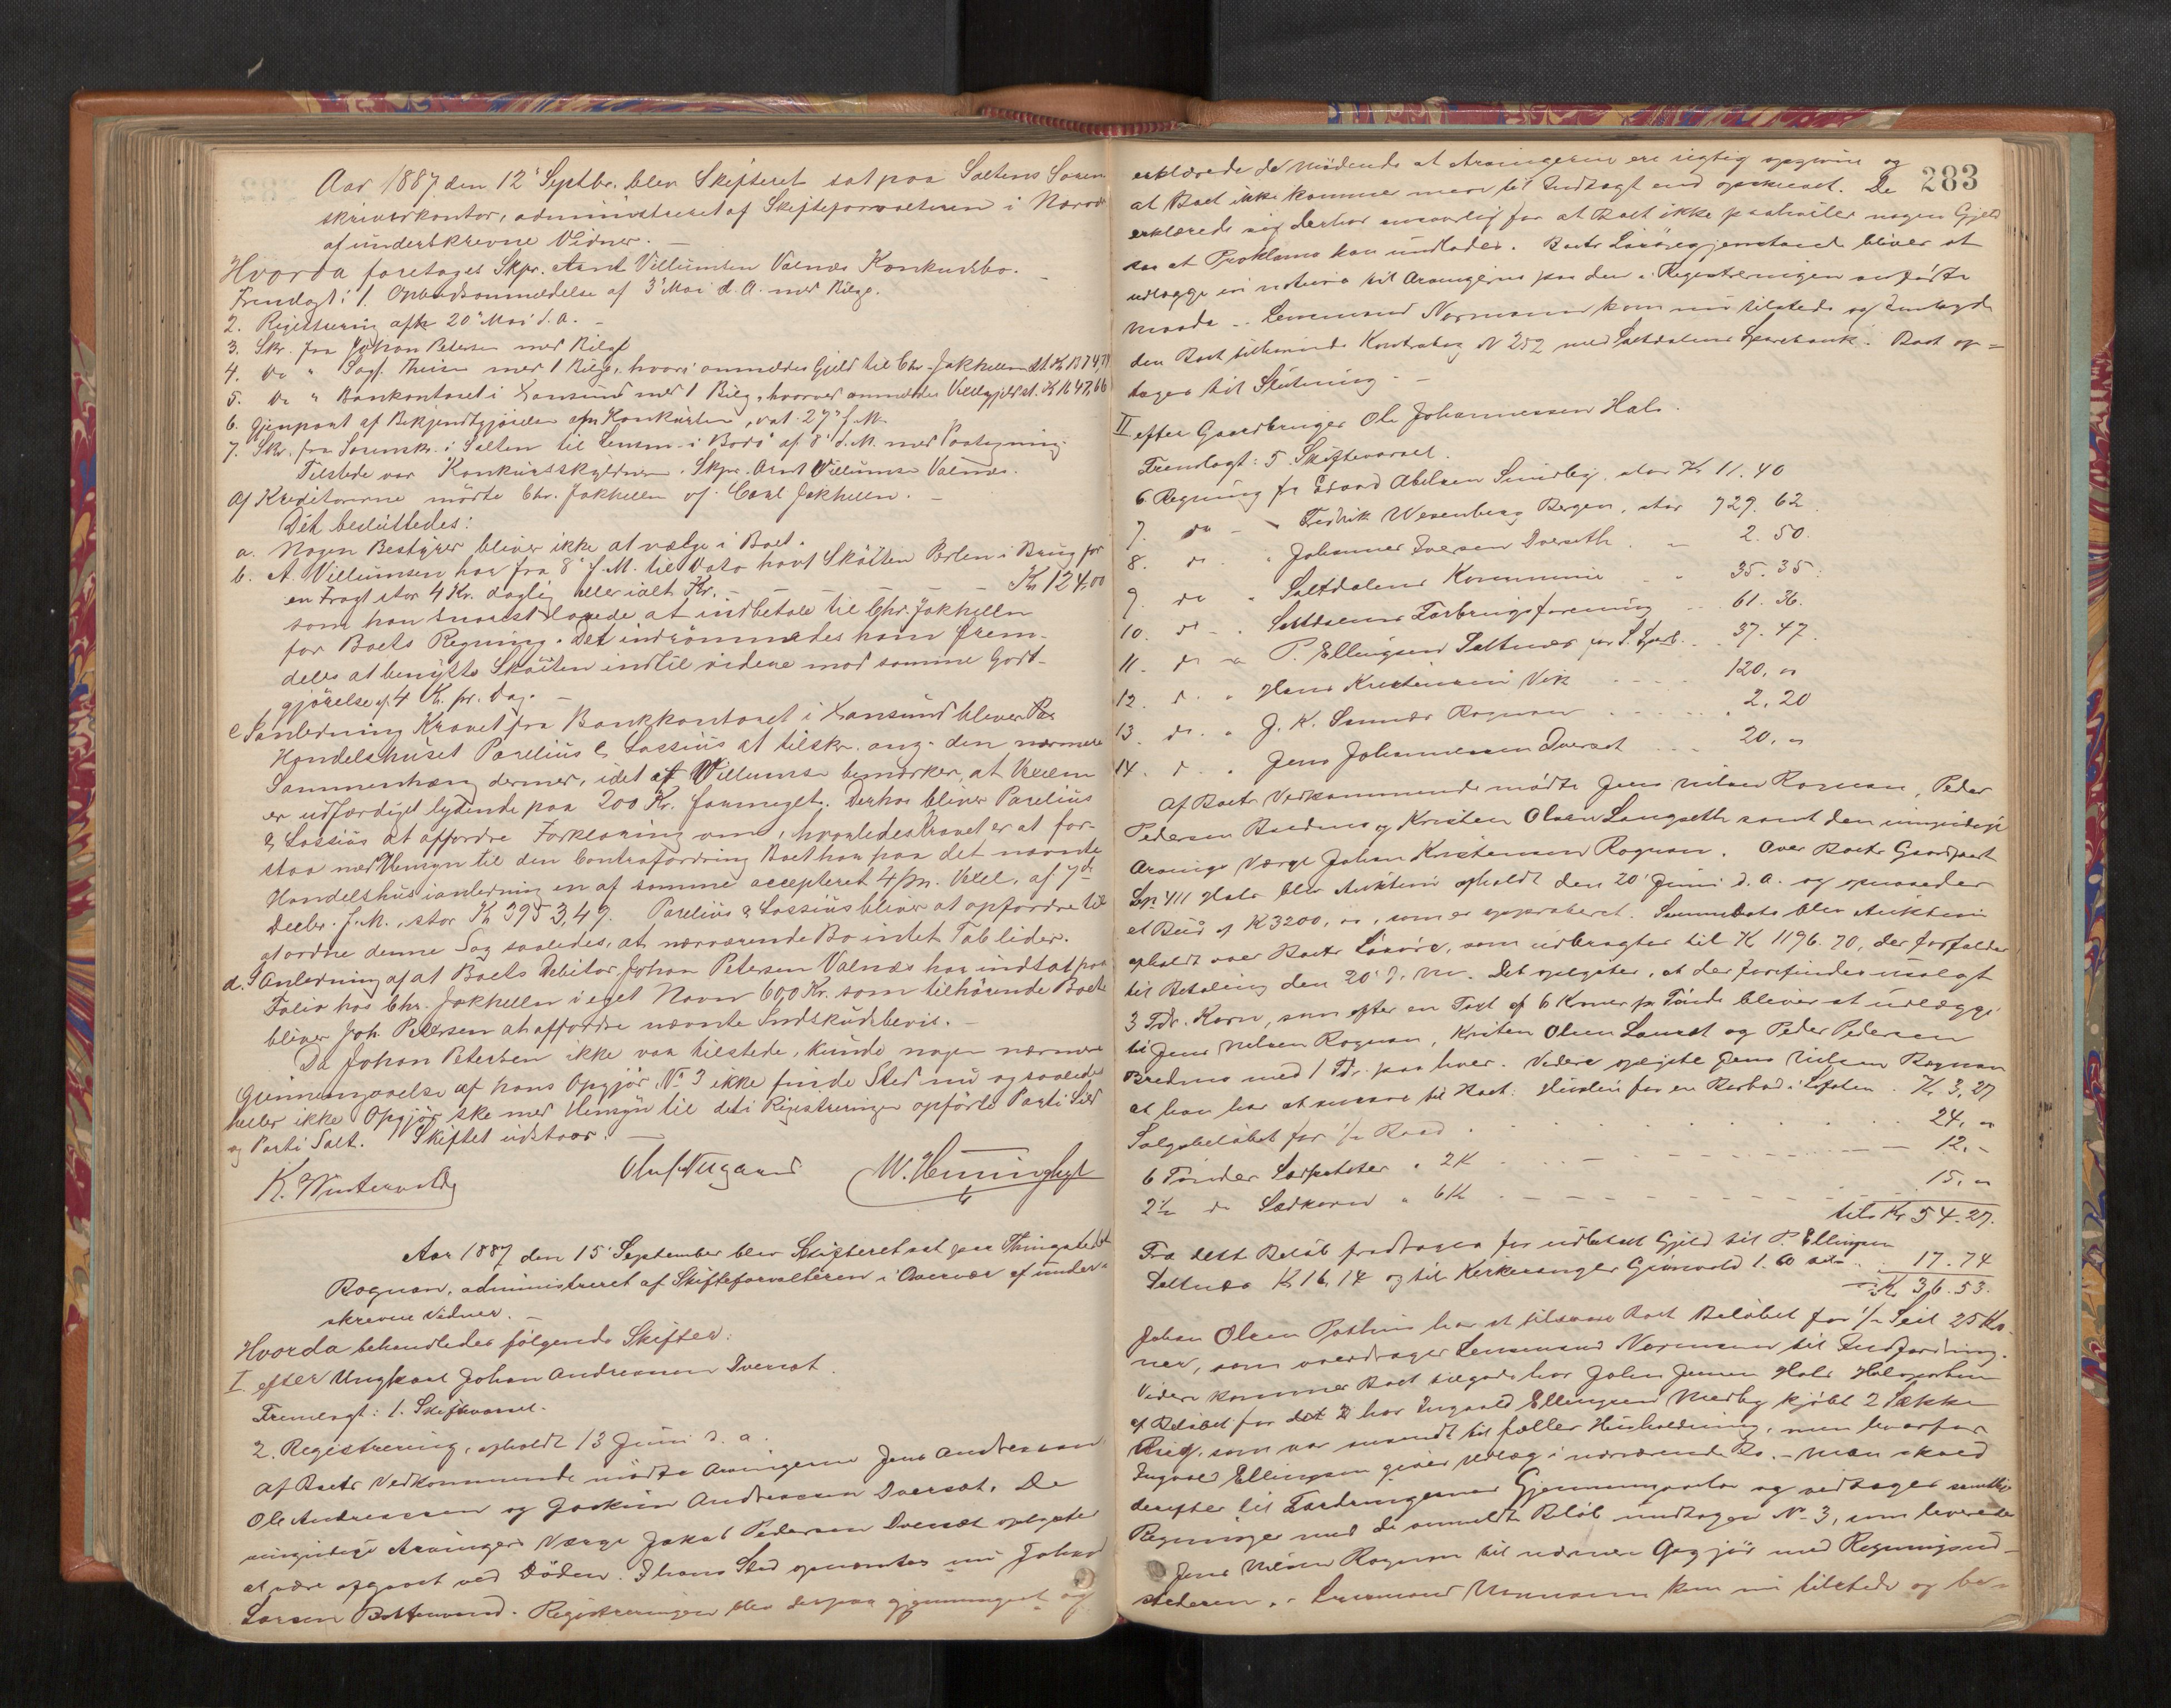 Aar 1887 den 12' Septbr. blev Skifteret sat paa Saltens Soren
skriverkontor, administreret af Skifteforvalteren i Nærvær
af underskrevne Vidner. —
Hvorda foretages Skpr. Arnt Villumsen Valnæs Konkursbo. —
Fremlagt: 1. Opbudsanmeldelse af 3' Mai d. A. med Bilag.
2. Registrering afh. 20' Mai d. A. —
3. Skr. fra Johan Petersen med Bilag
4. Do " Sagf. Theisen med 1 Bilag, hvori anmeldes Gjeld til Chr. Jakhelln st. Kr 1874,78
5. Do " Bankkontoret i Xansund med 1 Bilag, hvorved anmeldes Vexelgjeld st. Kr 1647,66
6. Gjenpart af Bekjendtgjørelse om Konkursen, dat. 27' f. M.
7. Skr. fra Sorenskr. i Salten til Lensm. i Bodø af 8' d. M. med Paategning.
Tilstede var Konkursskyldneren Skpr. Arnt Villumsen Valnæs.
Af Kreditorerne mødte Chr. Jakhelln v/ Carl Jakhelln. —
Det besluttedes:
a. Nogen Bestyrer bliver ikke at vælge i Boet.
b. A. Villumsen har fra 8' f. M. til Dato havt Skøiten Perlen i Brug for
en Fragt stor 4 Kr. daglig eller ialt Kr. — — — Kr 124,00
som han snarest lovede at indbetale til Chr. Jakhelln
for Boets Regning. Det indrømmedes ham frem-
deles at benytte Skøiten indtil videre mod samme Godt-
gjørelse af 4 Kr. pr. Dag. —
c I Anledning Kravet fra Bankkontoret i Xansund bliver
Handelshuset Parelius & Lossius at tilskr. ang. den nærmere
Sammenhæng dermed, idet A. Villumsen bemærker, at Vexelen
er udfærdiget lydende paa 200 Kr. formeget. Derhos bliver Parelius
& Lossius at affordre Forklaring om, hvorledes Kravet er at for-
staa med Hensyn til den Contrafordring Boet har paa det nævnte
Handelshus i anledning en af samme accepteret 4 m. Vexel, af 7de
Decbr. f. A., stor Kr 3953,49. Parelius & Lossius bliver at opfordre til
at ordne denne Sag saaledes, at nærværende Bo intet Tab lider.
d. I Anledning af at Boets Debitor Johan Petersen Valnæs har indsat paa
Folio hos Chr. Jakhelln i eget Navn 600 Kr. som tilhørende Boet
bliver Joh. Petersen at affordre nævnte Indskudsbevis. —
Da Johan Petersen ikke var tilstede, kunde nogen nærmere
Gjennemgaaelse af hans Opgjør No 3 ikke finde Sted nu og saaledes
heller ikke Opgjør ske med Hensyn til det i Registreringen opførte Parti Sild
og Parti Salt. Skiftet udstaar. —
K. Wintervold Oluf Nugaard W. Henningkyl
Aar 1887 den 15' September blev Skifteret sat paa Thingstedet
Rognan, administreret af Skifteforvalteren i Overvær af under-
skrevne Vidner. —
Hvorda behandledes følgende Skifter:
I. efter Ungkarl Johan Andreassen Dverset.
Fremlagt: 1. Skiftevarsel.
2. Registrering, afholdt 13 Juni d. a.
Af Boets Vedkommende mødte Arvingerne Jens Andreassen
Ole Andreassen og Joakim Andreassen Dverset. De
umyndige Arvingers Værge Jakob Pedersen Dverset oplystes
at være afgaaet ved Døden. I hans Sted opnævntes nu Johan
Larsen Botnvand. Registreringen blev derpaa gjennemgaaet og
283
erklærede de Mødende at Arvingerne ere rigtig opgivne og
at Boet ikke kommer mere til Indtægt end opskrevet. De
erklærede sig derhos ansvarlig for at Boet ikke paahviler nogen Gjeld
saa at Proklama kan undlades. Boets Løsøregjenstande bliver at
udlægge in natura til Arvingerne paa den i Registreringen anførte
Maade. — Lensmand Normann kom nu tilstede og fremlagde
den Boet tilhørende Kontrabog N 252 med Saltdalens Sparebank. Boet op-
tages til Slutning. —
II efter Gaardbruger Ole Johannessen Hals.
Fremlagt: 5 Skiftevarsel.
6 Regning fr Edvard Abelsen Sundby, stor Kr 11.40
7. do - " Fredrik Wesenberg Bergen, stor 729.62
8. do " Johannes Iversen Dverseth " 2.50.
9. do " Saltdalens Kommune - " 35.35.
10. do - " Saltdalens Forbrugsforening - - 61.36.
11. do " P. Ellingsen Saltnæs for S. Sparb. - 37.47.
12. d. " Hans Kristensen Vik - - - - 120,00
13. do. " J. K. Sannes Rognan - - - - 2,20
14. d. " Jens Johannessen Dverset - - - 20,00
Af Boets Vedkommende mødte Jens Nilsen Rognan, Peder
Pedersen Bredmo og Kristen Olsen Langseth samt den umyndige
Arvings Værge Johan Kristensen Rognan. Over Boets Gaardpart
Lb. 411 Hals blev Auktion afholdt den 20' Juni d. a. og opnaaedes
et Bud af K 3200,00, som er approberet. Sammedato blev Auktion
afholdt over Boets Løsøre, som udbragtes til K 1196.70, der forfalder
til Betaling den 20' d. M. Det oplystes, at der forefindes usolgt
3 Tdr. Korn, som efter en Taxt af 6 Kroner pr Tønde bliver at udlægge
til Jens Nilsen Rognan, Kristen Olsen Lanset og Peder Pedersen
Bredmo med 1 Td. paa hver. Videre oplyste Jens Nilsen Rognan
at han har at svare til Boet: Husleie for en Rorbod i Lofoten. Kr. 3,27
Salgsbeløbet for 1/2 Baad - - - - - 24,00
6 Tønder Sædpoteter a 2 K - - - - - 12,-
2 1/2 do Sædkorn a 6 K - - - - - 15,00
tils Kr 54.27.
Fra dette Beløb fradrages for udbetalt Gjeld til P. Ellingsen
Saltnæs K 16,14 og til Kirkesanger Grønvold 1.60 tils - 17.74
= Kr 36.53.
Johan Olsen Pothus har at tilsvare Boet Beløbet for 1/2 Seil 25 Kro-
ner, som overdrages Lensmand Normann til Indfordring.
Videre kommer Boet tilgode hos John Jensen Hals Halvparten
af Beløbet for det 2 har Ingvald Ellingsen Medby kjøbt 2 Sække
Rug, som var anvendt til fælles Husholdning, men hvorfor
Ingvald Ellingsen giver Udlæg i nærværende Bo. — Man skred
derefter til Fordringernes Gjennemgaaelse og vedtoges samtlige
Regninger med de anmeldte Beløb undtagen No 3, som leveredes
Jens Nilsen Rognan til nærmere Opgjør med Regningsud-
stederen. - Lensmand Normann kom nu tilstede og be-